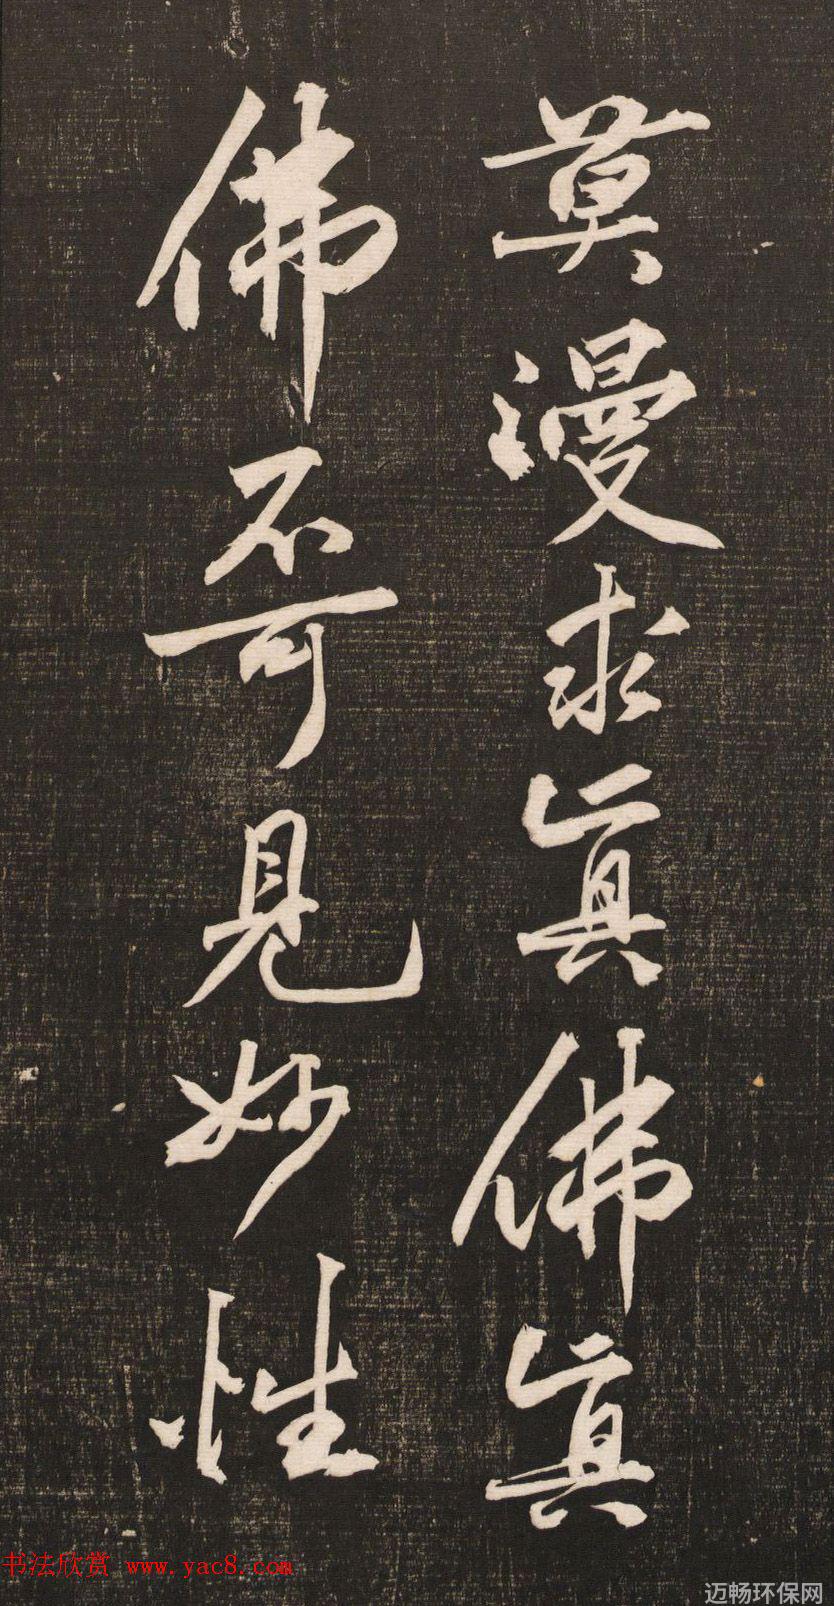 莫漫求真佛真
佛不可見妙性
书法欣赏 www.yac8.com
迈畅环保网